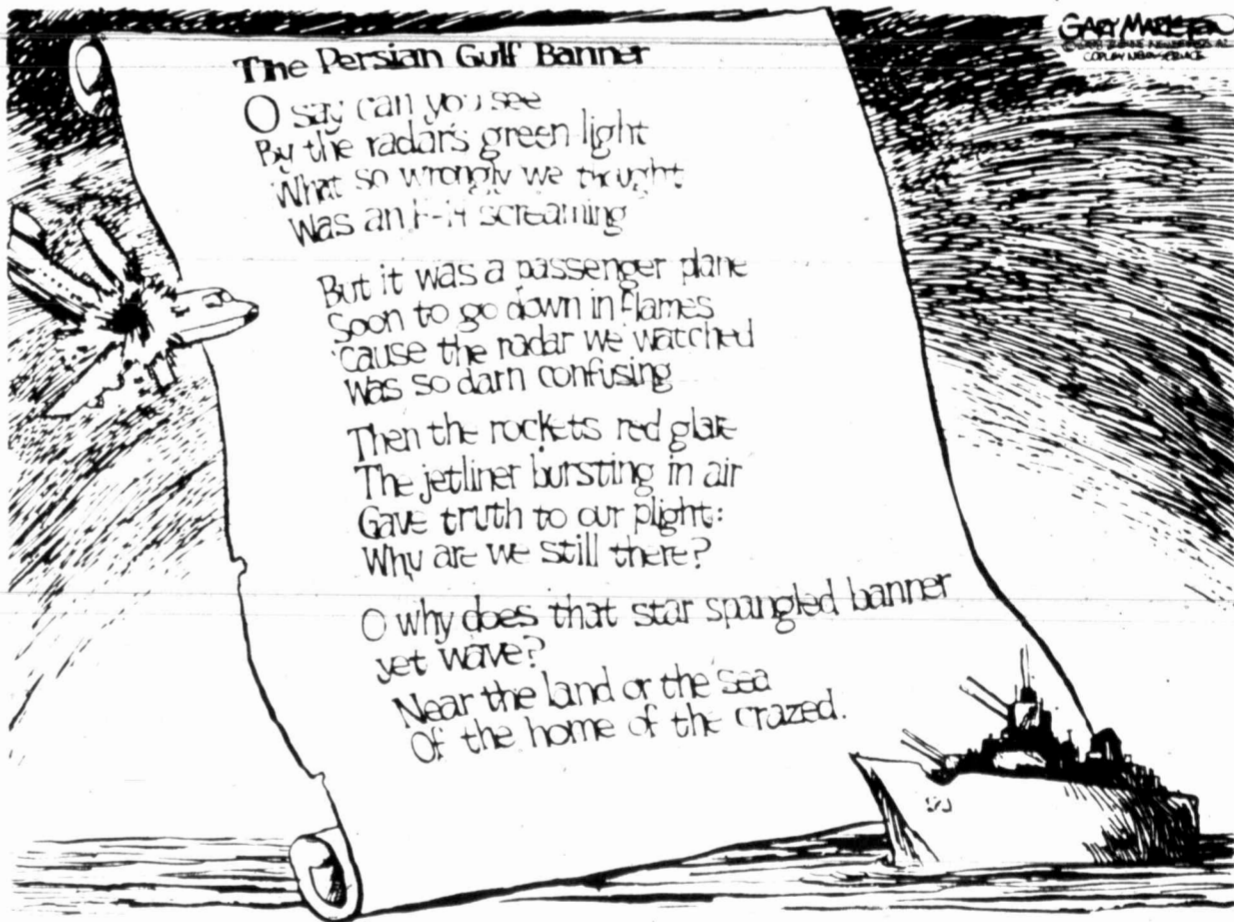 The Persian Gulf Banner
O say can you see
By the radar's green light
What so wrongly we thought
Was an F-14 screaming
But it was a passenger plane
Soon to go down in flames
'cause the radar we watched
Was so darn confusing
Then the rockets red glare
The jetliner bursting in air
Gave truth to our plight:
Why are we still there?
O why does that star spangled banner
yet wave?
Near the land or the sea
Of the home of the crazed.
GARY MARKSTEIN
COPLEY NEWS SERVICE